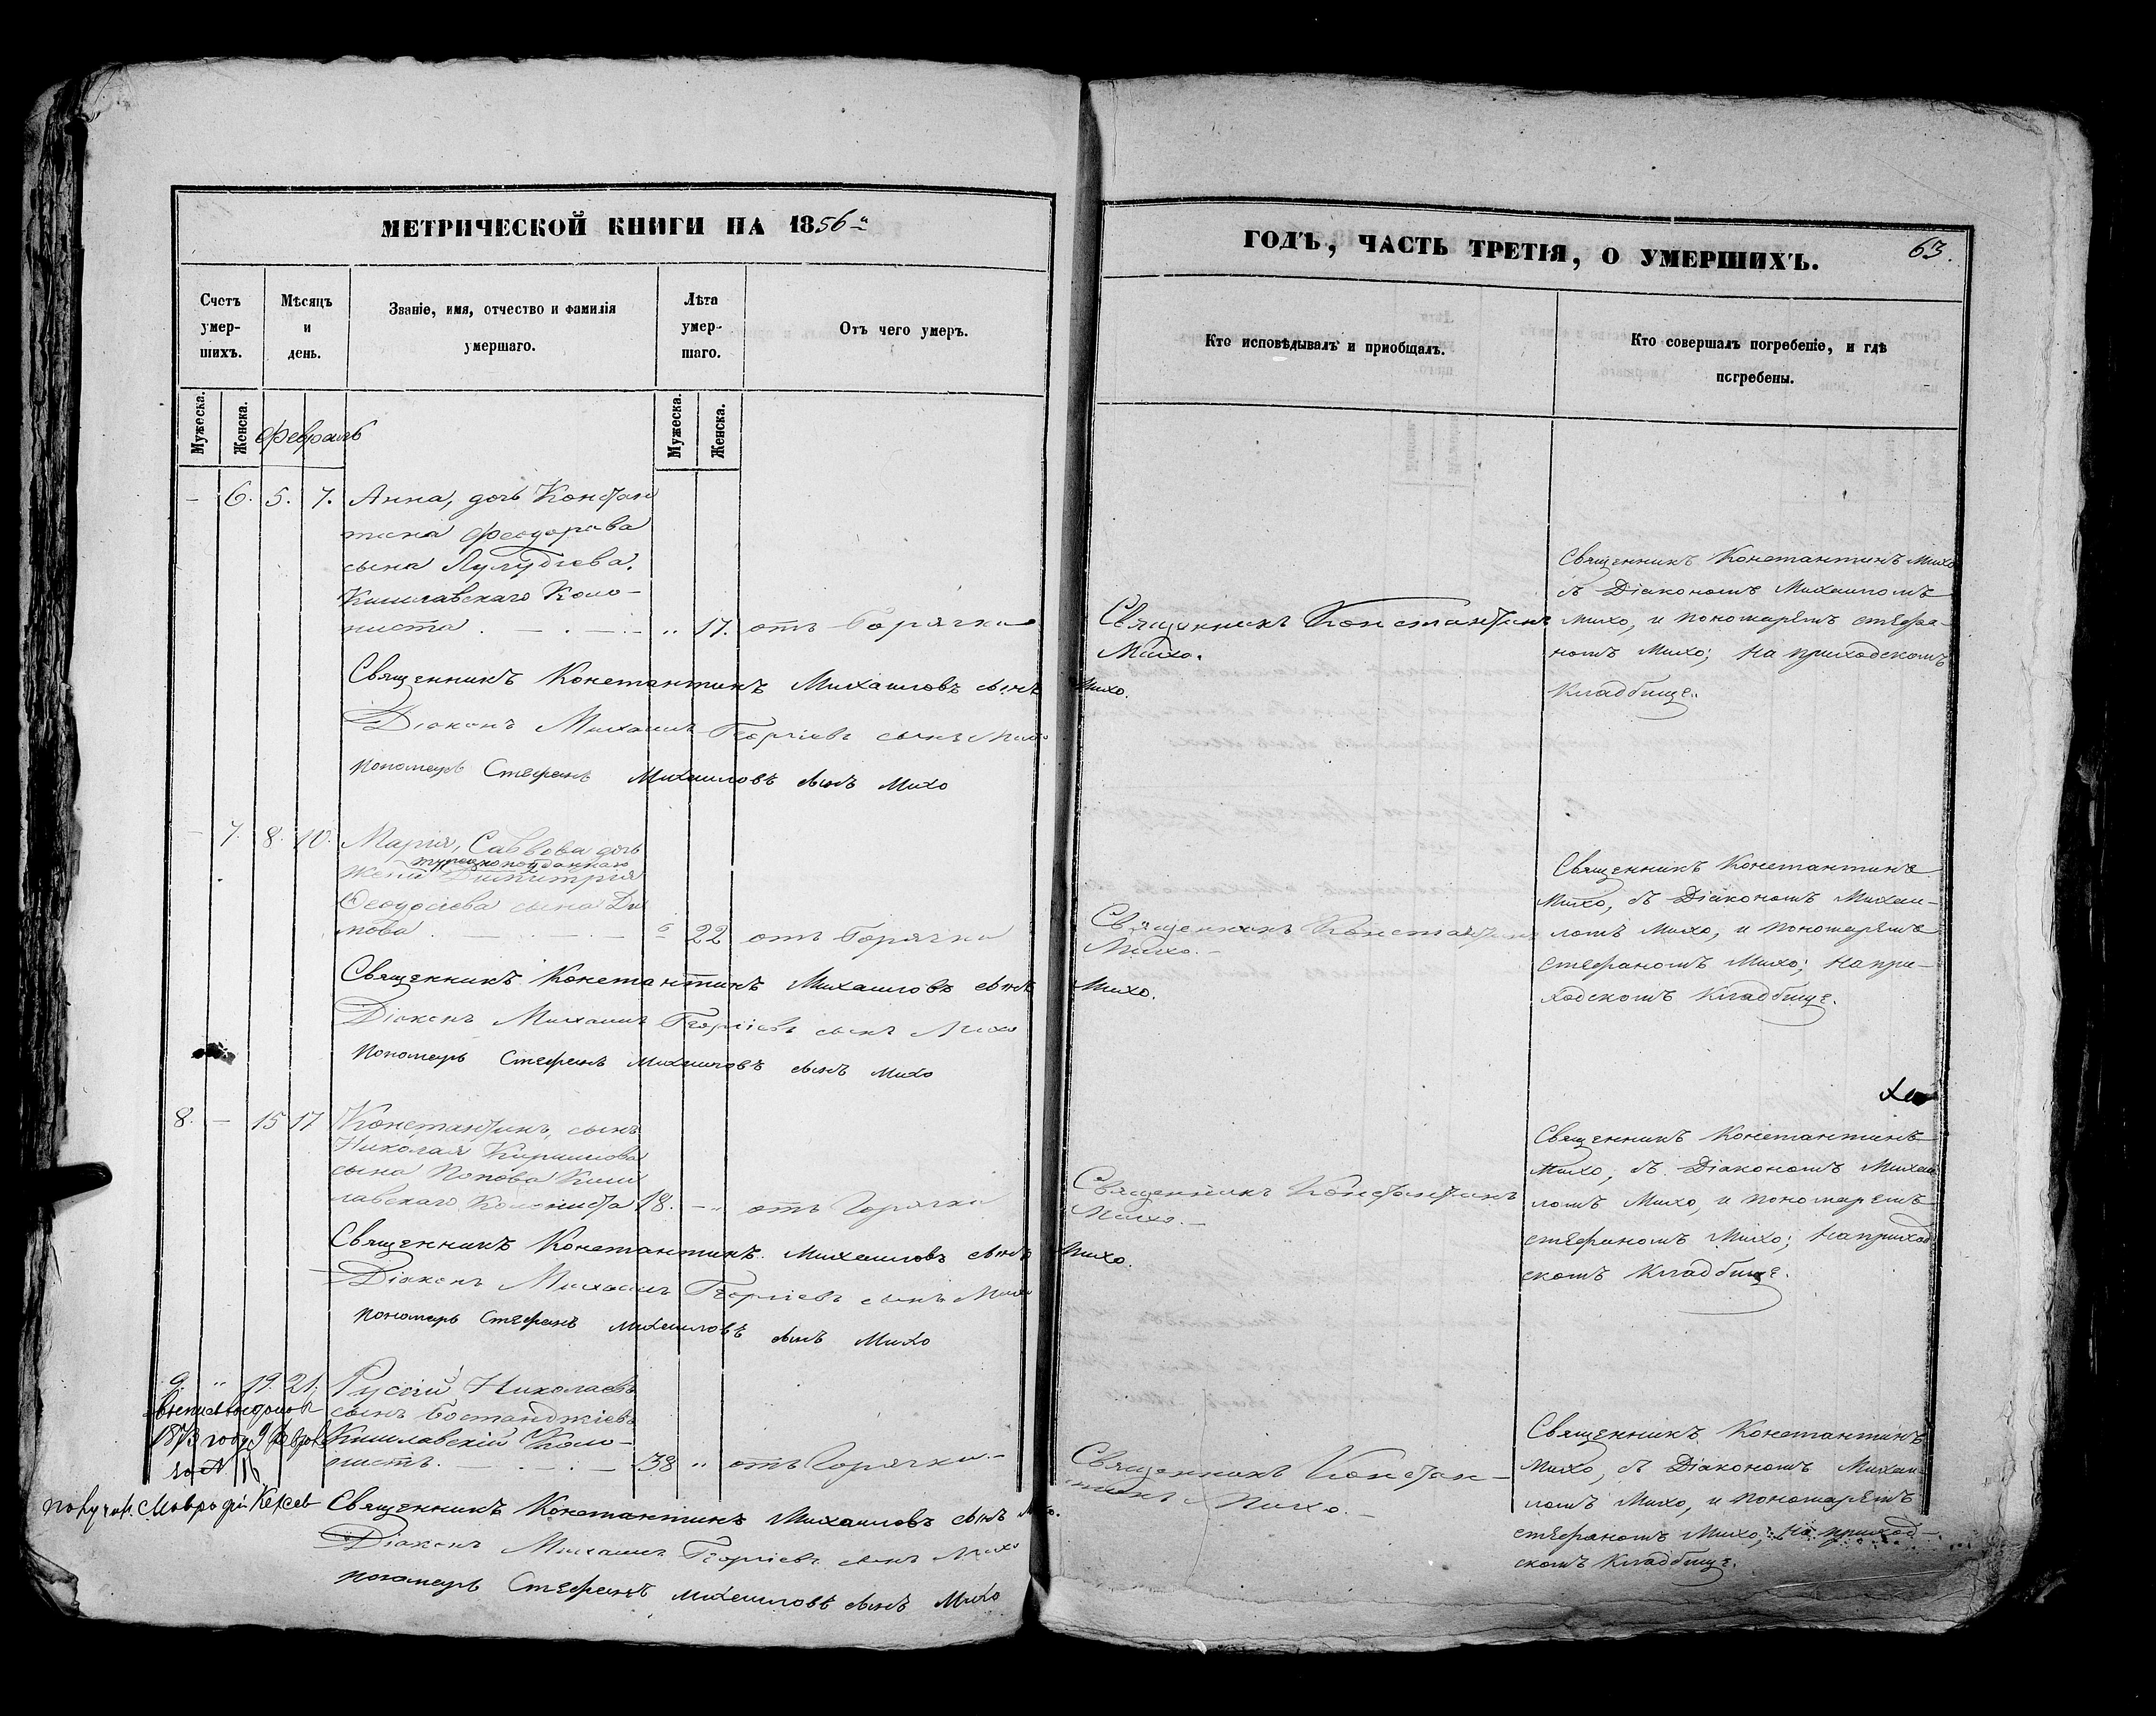 МЕТРИЧЕСКОЙ КНИГИ НА 1856й
Счетъ умер-шихъ.
Мѣсяцъ и день.
Званіе, имя, отчество и фамилія умершаго.
Лѣта умер-шаго.
Отъ чего умеръ.
Мужеска.
Женска.
Февраль
Мужеска.
Женска.
– 6. 5. 7. Анна, дочь Констан
тина Феодорова
сына Лулудіева,
Кишлавскаго Коло-
ниста . — . — . „ 17. отъ Горячки
Священникъ Константинъ Михаиловъ сынъ Михо.
Діаконъ Михаилъ Георгіевъ сынъ Михо
Пономарь Стефанъ Михаиловъ сынъ Михо
– 7. 8. 10. Марія, Саввова дочь
турецкоподданаго
жена Димитрія
Феодосіева сына Ди
мова . — . — . — 22 отъ Горячки
Священникъ Константинъ Михаиловъ сынъ Михо.
Діаконъ Михаилъ Георгіевъ сынъ Михо
Пономарь Стефанъ Михаиловъ сынъ Михо
8. – 15 17 Константинъ, сынъ
Николая Кириллова
сына Попова Киш
лавскаго Колониста 18. – „ отъ Горячки
Священникъ Константинъ Михаиловъ сынъ Михо.
Діаконъ Михаилъ Георгіевъ сынъ Михо
Пономарь Стефанъ Михаиловъ сынъ Михо
9. „ 19. 21. Русſій Николаевъ
сынъ Бостанджіевъ
Кишлавскій Коло-
нистъ. — . — . — 38 „ отъ Горячки. –
1873 году 9 Февра
Священникъ Константинъ Михаиловъ сынъ Михо.
Діаконъ Михаилъ Георгіевъ сынъ Михо
Пономарь Стефанъ Михаиловъ сынъ Михо
ГОДЪ, ЧАСТЬ ТРЕТІЯ, О УМЕРШИХЪ.
63.
Кто исповѣдывалъ и пріобщалъ.
Кто совершалъ погребеніе, и гдѣ погребены.
Священникъ Константинъ
Михо.
Священникъ Константинъ Михо
съ Діакономъ Михаиломъ
Михо, и пономаремъ Стефа-
номъ Михо; на приходскомъ
Кладбище.
Священникъ Константинъ
Михо. –
Священникъ Константинъ
Михо, съ Діакономъ Михаи-
ломъ Михо, и пономаремъ
Стефаномъ Михо; на при-
ходскомъ Кладбище.
Священникъ Константинъ
Михо. –
Священникъ Константинъ
Михо, съ Діакономъ Михаи
ломъ Михо, и пономаремъ
Стефаномъ Михо; на приход
скомъ Кладбище.
Священникъ Констан-
тинъ Михо. –
Священникъ Константинъ
Михо, съ Діакономъ Михаи-
ломъ Михо, и пономаремъ
Стефаномъ Михо; на приход-
скомъ Кладбище.